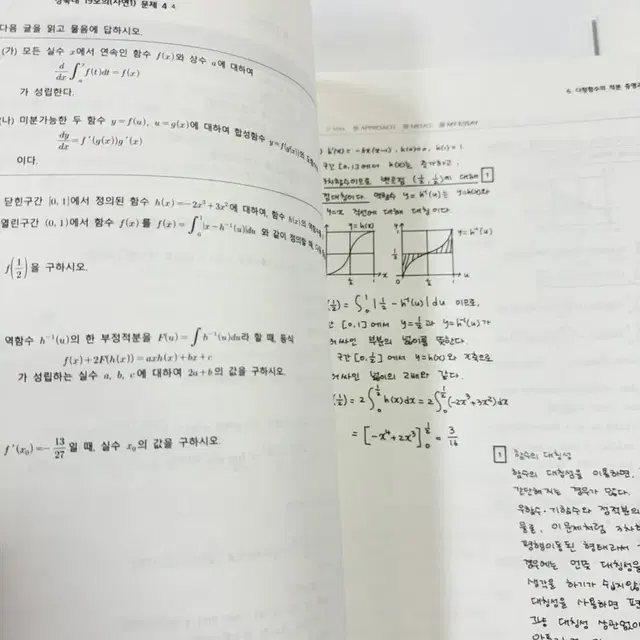 경북대 19모의(자연1) 문제 4
다음 글을 읽고 물음에 답하시오.
(가) 모든 실수 x에서 연속인 함수 f(x)와 상수 a에 대하여
d/dx ∫_a^x f(t)dt = f(x)
가 성립한다.
(나) 미분가능한 두 함수 y=f(u), u=g(x)에 대하여 합성함수 y=f(g(x))의
dy/dx = f'(g(x))g'(x)
이다.
닫힌구간 [0, 1]에서 정의된 함수 h(x)=-2x³+3x²에 대하여, 함수 h(x)의
열린구간 (0, 1)에서 함수 f(x)를 f(x)=∫_0^1 |x-h⁻¹(u)|du 와 같이 정의할 때,
f(1/2)을 구하시오.
역함수 h⁻¹(u)의 한 부정적분을 F(u)=∫h⁻¹(u)du라 할 때, 등식
f(x)+2F(h(x))=axh(x)+bx+c
가 성립하는 실수 a, b, c에 대하여 2a+b의 값을 구하시오.
f'(x₀)=-13/27일 때, 실수 x₀의 값을 구하시오.
6. 다항함수의 적분
APPROACH MEMO MY ESSAY
h'(x) = -6x(x-1), h(0)=0, h(1)=1.
구간 [0,1]에서 h(x)는 증가하고,
변곡점 (1/2, 1/2)에 대해 1
점대칭이다. 역함수 y=h⁻¹(u)는 y=h(x)와
y=x 직선에 대해 대칭이다.
y=h(x)
1/2 x
y y=h⁻¹(u)
1/2
1/2 u
(1/2) = ∫_0^1 |1/2 - h⁻¹(u)| du 이므로,
[0,1]에서 y=1/2과 y=h⁻¹(u)가
싸인 부분의 넓이를 뜻한다.
구간 [0,1/2]에서 y=h(x)와 x축으로
싸인 넓이의 2배와 같다.
(1/2) = 2∫_0^{1/2} h(x)dx = 2∫_0^{1/2} (-2x³+3x²)dx
= [-x⁴+2x³]_0^{1/2} = 3/16
1 함수의 대칭성
함수의 대칭성을 이용하면,
간단해지는 경우가 많다.
우함수·기함수와 정적분의
물론, 이 문제처럼 3차함
평행이동된 형태라서
경우에는 먼저 대칭성을
생각을 하기가 쉽지 않
대칭성을 사용하면
대칭성 상관없이